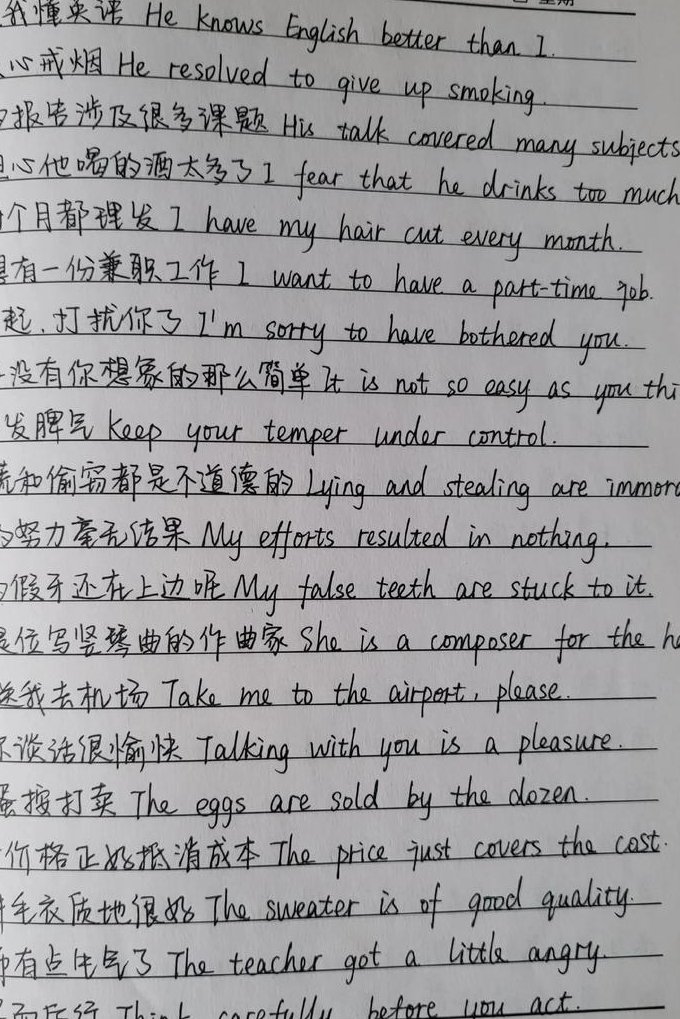 我懂英语 He knows English better than I.
心戒烟 He resolved to give up smoking.
报告涉及很多课题 His talk covered many subjects
心他喝的酒太多了 I fear that he drinks too much
个月都理发 I have my hair cut every month.
有一份兼职工作 I want to have a part-time job.
起,打扰你了 I'm sorry to have bothered you.
没有你想象的那么简单 It is not so easy as you thi
发脾气 Keep your temper under control.
和偷窃都是不道德的 Lying and stealing are immora
努力毫无结果 My efforts resulted in nothing.
假牙还在上边呢 My false teeth are stuck to it.
位写竖琴曲的作曲家 She is a composer for the ha
送我去机场 Take me to the airport, please.
谈话很愉快 Talking with you is a pleasure.
蛋按打卖 The eggs are sold by the dozen.
价格正好抵消成本 The price just covers the cost.
毛衣质地很好 The sweater is of good quality.
有点生气了 The teacher got a little angry.
而后行 Think carefully before you act.